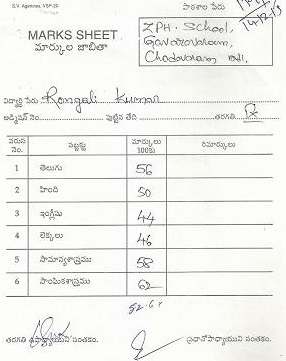 S.V. Agencies, VSP-20
పాఠశాల పేరు
MARKS SHEET
మార్కుల జాబితా
ZPH. School,
Gavaravaram,
Chodavaram
విద్యార్థి పేరు Rongali Kumar
అడ్మిషన్ నెం. పుట్టిన తేది తరగతి
వరుస నెం. సబ్జక్టు మార్కులు 100కు రిమార్కులు
1 తెలుగు 56
2 హింది 50
3 ఇంగ్లీషు 44
4 లెక్కలు 46
5 సామాన్యశాస్త్రము 58
6 సాంఘికశాస్త్రము 62
తరగతి ఉపాధ్యాయుని సంతకం. ప్రధానోపాధ్యాయుని సంతకం.